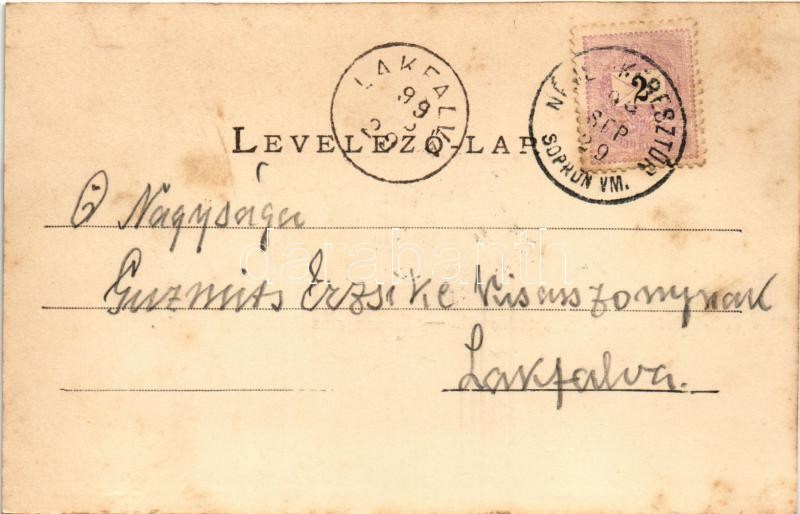 LAKFALVA
99
LEVELEZŐ-LAP
2
KERESZTÚR
SEP
29
SOPRON VM.
Ő Nagysága
Guzmits Erzsike Kisasszonynak
Lakfalva.
darabanth